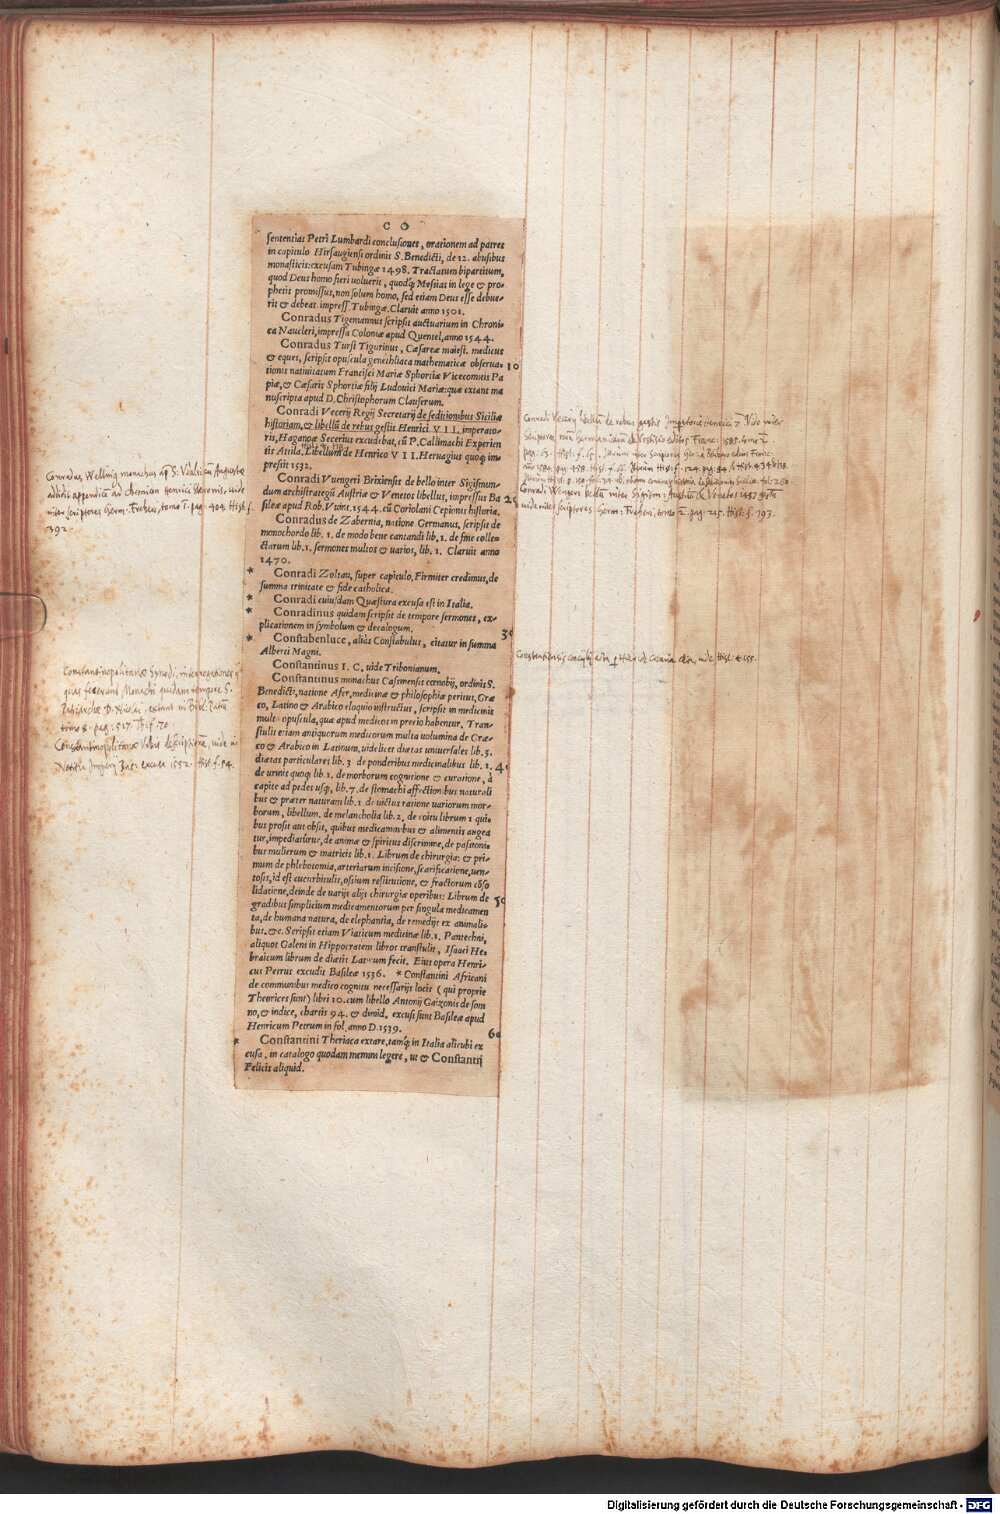 C O
sententias Petri Lumbardi conclusiones, orationem ad patres
in capitulo Hirsaugiensi ordinis S. Benedicti, de 12. abusibus
monasticis: excusam Tubingæ 1498. Tractatum bipartitum,
quod Deus homo fieri voluerit, quodq́; Messias in lege & pro-
phetis promissus, non solum homo, sed etiam Deus esse debue-
rit & debeat. impress. Tubingæ. Claruit anno 1501.
Conradus Tigemannus scripsit auctuarium in Chroni-
ca Naucleri, impressa Coloniæ apud Quentel, anno 1544.
Conradus Turst Tigurinus, Cæsareæ maiest. medicus
& eques, scripsit opuscula genethliaca mathematicæ observa- 10
tionis nativitatum Francisci Mariæ Sphortiæ Vicecomitis Pa
piæ, & Cæsaris Sphortiæ filij Ludovici Mariæ: quæ extant ma
nuscripta apud D. Christophorum Clauserum.
Conradi Vecerij Regij Secretarij de seditionibus Siciliæ
historiam, & libellũ de rebus gestis Henrici VII. imperato-
ris, Haganoæ Secerius excudebat, cũ P. Callimachi Experien
tis Attila. Libellum de Henrico VII. Hervagius quoq; im-
pressit 1532.
Conradi Vuengeri Brixiensis de bello inter Sigismun-
dum archistrategũ Austriæ & Venetos libellus, impressus Ba 20
sileæ apud Rob. Vuint. 1544. cũ Coriolani Cepionis historia.
Conradus de Zabernia, natione Germanus, scripsit de
monochordo lib. 1. de modo bene cantandi lib. 1. de fine colle-
ctarum lib. 1. sermones multos & varios, lib. 1. Claruit anno
1470.
* Conradi Zoltau, super capitulo, Firmiter credimus, de
summa trinitate & fide catholica.
* Conradi cuiusdam Quæstura excusa est in Italia.
* Conradinus quidam scripsit de tempore sermones, ex-
plicationem in symbolum & decalogum. 30
* Constabenluce, aliàs Constabulus, citatur in summa
Alberti Magni.
Constantinus I. C. vide Tribonianum.
Constantinus monachus Cassinensis cœnobij, ordinis S.
Benedicti, natione Afer, medicinæ & philosophiæ peritus, Græ
co, Latino & Arabico eloquio instructus, scripsit in medicinis
multa opuscula, quæ apud medicos in precio habentur. Tran-
stulit etiam antiquorum medicorum multa volumina de Græ-
co & Arabico in Latinum, videlicet diætas universales lib. 5.
diætas particulares lib. 3 de ponderibus medicinalibus lib. 1. 40
de urinis quoq; lib. 1. de morborum cognitione & curatione, à
capite ad pedes usq;, lib. 7. de stomachi affectionibus naturali
bus & præter naturam lib. 1. de victus ratione variorum mor-
borum, libellum. de melancholia lib. 2. de coitu librum 1 qui-
bus prosit aut obsit, quibus medicaminibus & alimentis augea
tur, impediatũrue, de animæ & spiritus discrimine, de passioni-
bus mulierum & matricis lib. 1. Librum de chirurgia: & pri-
mum de phlebotomia, arteriarum incisione, scarificatione, ven-
tosis, id est cucurbitulis, ossium restitutione, & fractorum cõso
lidatione, deinde de varijs alijs chirurgiæ operibus: Librum de 50
gradibus simplicium medicamentorum per singula medicamen
ta, de humana natura, de elephantia, de remedijs ex animali-
bus. &c. Scripsit etiam Viaticum medicinæ lib. 1. Pantechni,
aliquot Galeni in Hippocratem libros transtulit, Isaaci He-
braicum librum de diætis Latinum fecit. Eius opera Henri-
cus Petrus excudit Basileæ 1536. * Constantini Africani
de communibus medico cognitu necessarijs locis (qui proprie
Theorices sunt) libri 10. cum libello Antonij Gaizonis de som
no, & indice, chartis 94. & dimid. excusi sunt Basileæ apud
Henricum Petrum in fol. anno D. 1539. 60
* Constantini Theriaca extare, tamq́; in Italia alicubi ex
cusa, in catalogo quodam memini legere, ut & Constantij
Felicis aliquid.
Conradus Wellnig monachus
392.
Constantinopolitanæ Synodi, interrogationes
tomo 8. pag: 517. Th: f. 70.
Constantinopolitanæ Vrbis descriptionē, vide in
excusa 1552. Hist. f. 94.
Conradi Vecerij libellũ de rebus gestis Imperatoris Henrici 7. vide inter
vide inter scriptores Germ: Freheri, tomo 2. pag. 215. Hist. f. 393.